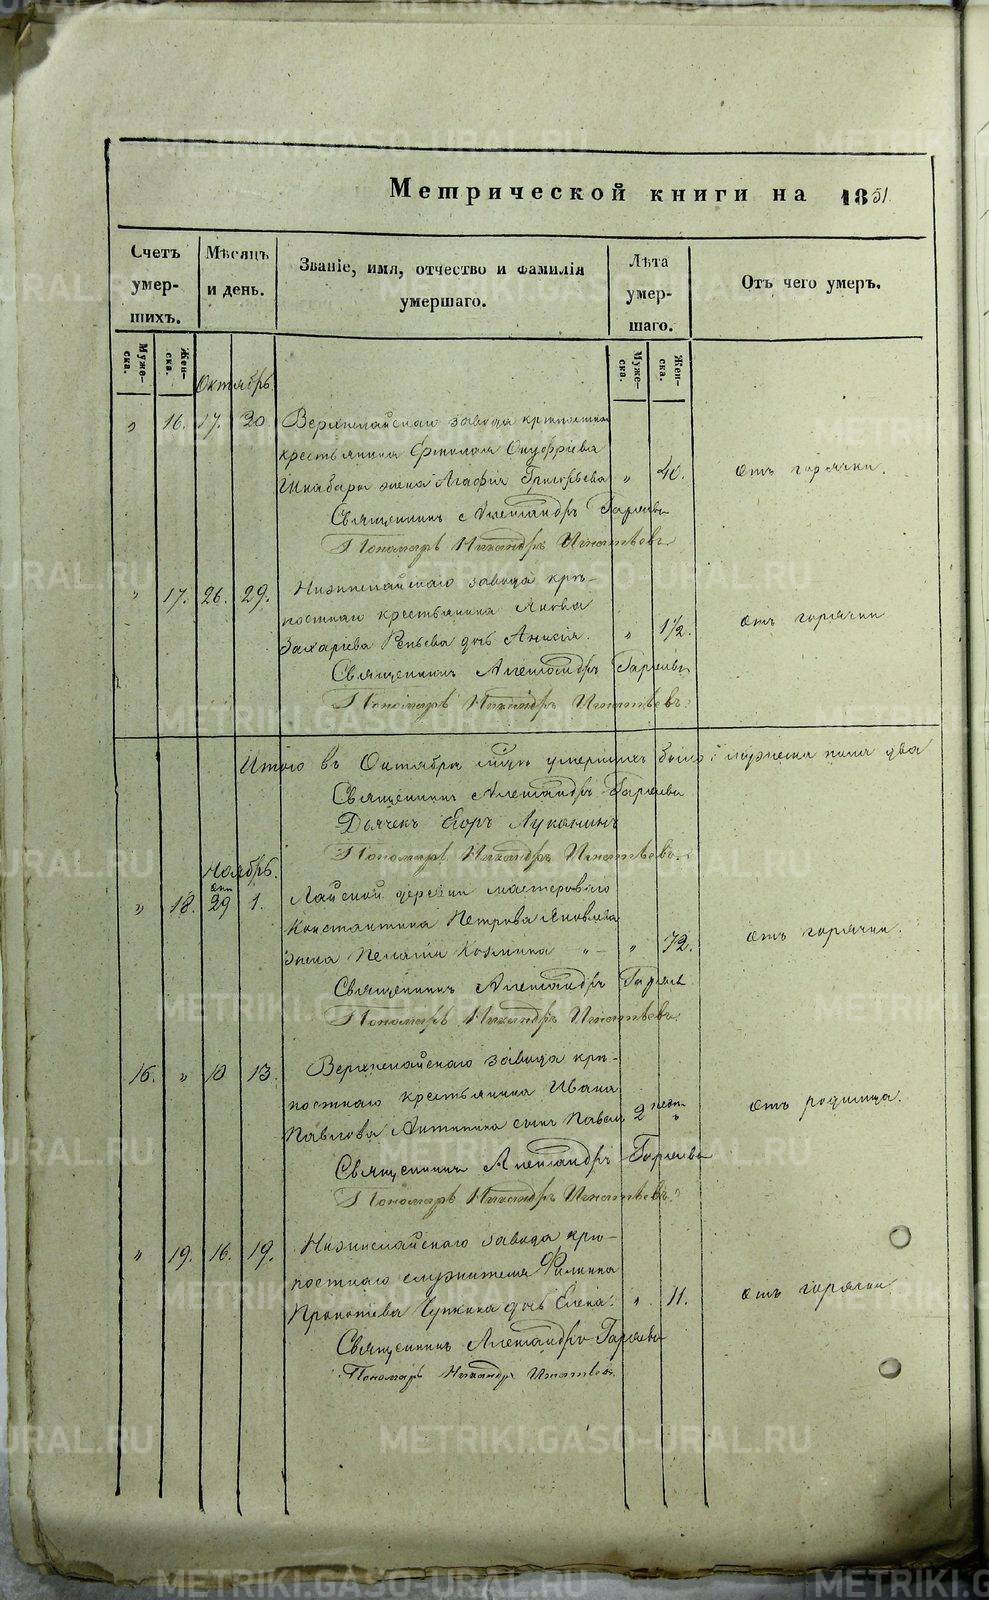 Метрической книги на 1851.
Счетъ умер-шихъ.
Мѣсяцъ и день.
Званіе, имя, отчество и фамилія умершаго.
Лѣта умер-шаго.
Отъ чего умеръ.
Муже-ска.
Жен-ска.
Муже-ска.
Жен-ска.
Октябрь
" 16. 17. 20. Верхнелайскаго завода крѣпостнаго
крестьянина Ермолая Онуфріева
жена Агафія Григорьева " 40. отъ горячки.
Священникъ Александръ
Пономарь Никандръ Игнатьевъ.
" 17. 26. 29. Нижнелайскаго завода крѣ-
постнаго крестьянина Якова
Захаріева дочь Анисія. " 1½. отъ горячки
Священникъ Александръ
Пономарь Никандръ Игнатьевъ.
Итого въ Октябрѣ мцѣ умершихъ было: женска пола два
Священникъ Александръ
Дьячекъ Егоръ Луканинъ
Пономарь Никандръ Игнатьевъ.
Ноябрь.
" 18. окт 29 1. Лайской деревни мастероваго
Константина Петрова Яковлева
жена Пелагія Козмина " — " 72. отъ горячки.
Священникъ Александръ
Пономарь Никандръ Игнатьевъ.
15. " 10 13. Верхнелайскаго завода крѣ-
постнаго крестьянина Ивана
Павлова сынъ Павелъ 2 недѣ. " отъ родимца.
Священникъ Александръ
Пономарь Никандръ Игнатьевъ.
" 19. 16. 19. Нижнелайскаго завода крѣ-
постнаго служителя Филиппа
Прокопьева Чупкина дочь Елена. " 11. отъ горячки
Священникъ Александръ
Пономарь Никандръ Игнатьевъ.
METRIKI.GASO-URAL.RU